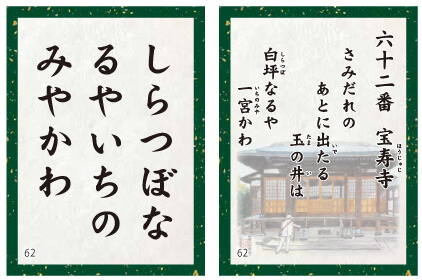 しらつぼな
るやいちの
みやかわ
62
六十二番 宝寿寺
ほうじゅじ
さみだれの
あとに出たる
いで
玉の井は
たま
い
白坪なるや
しらつぼ
一宮かわ
いちのみや
62